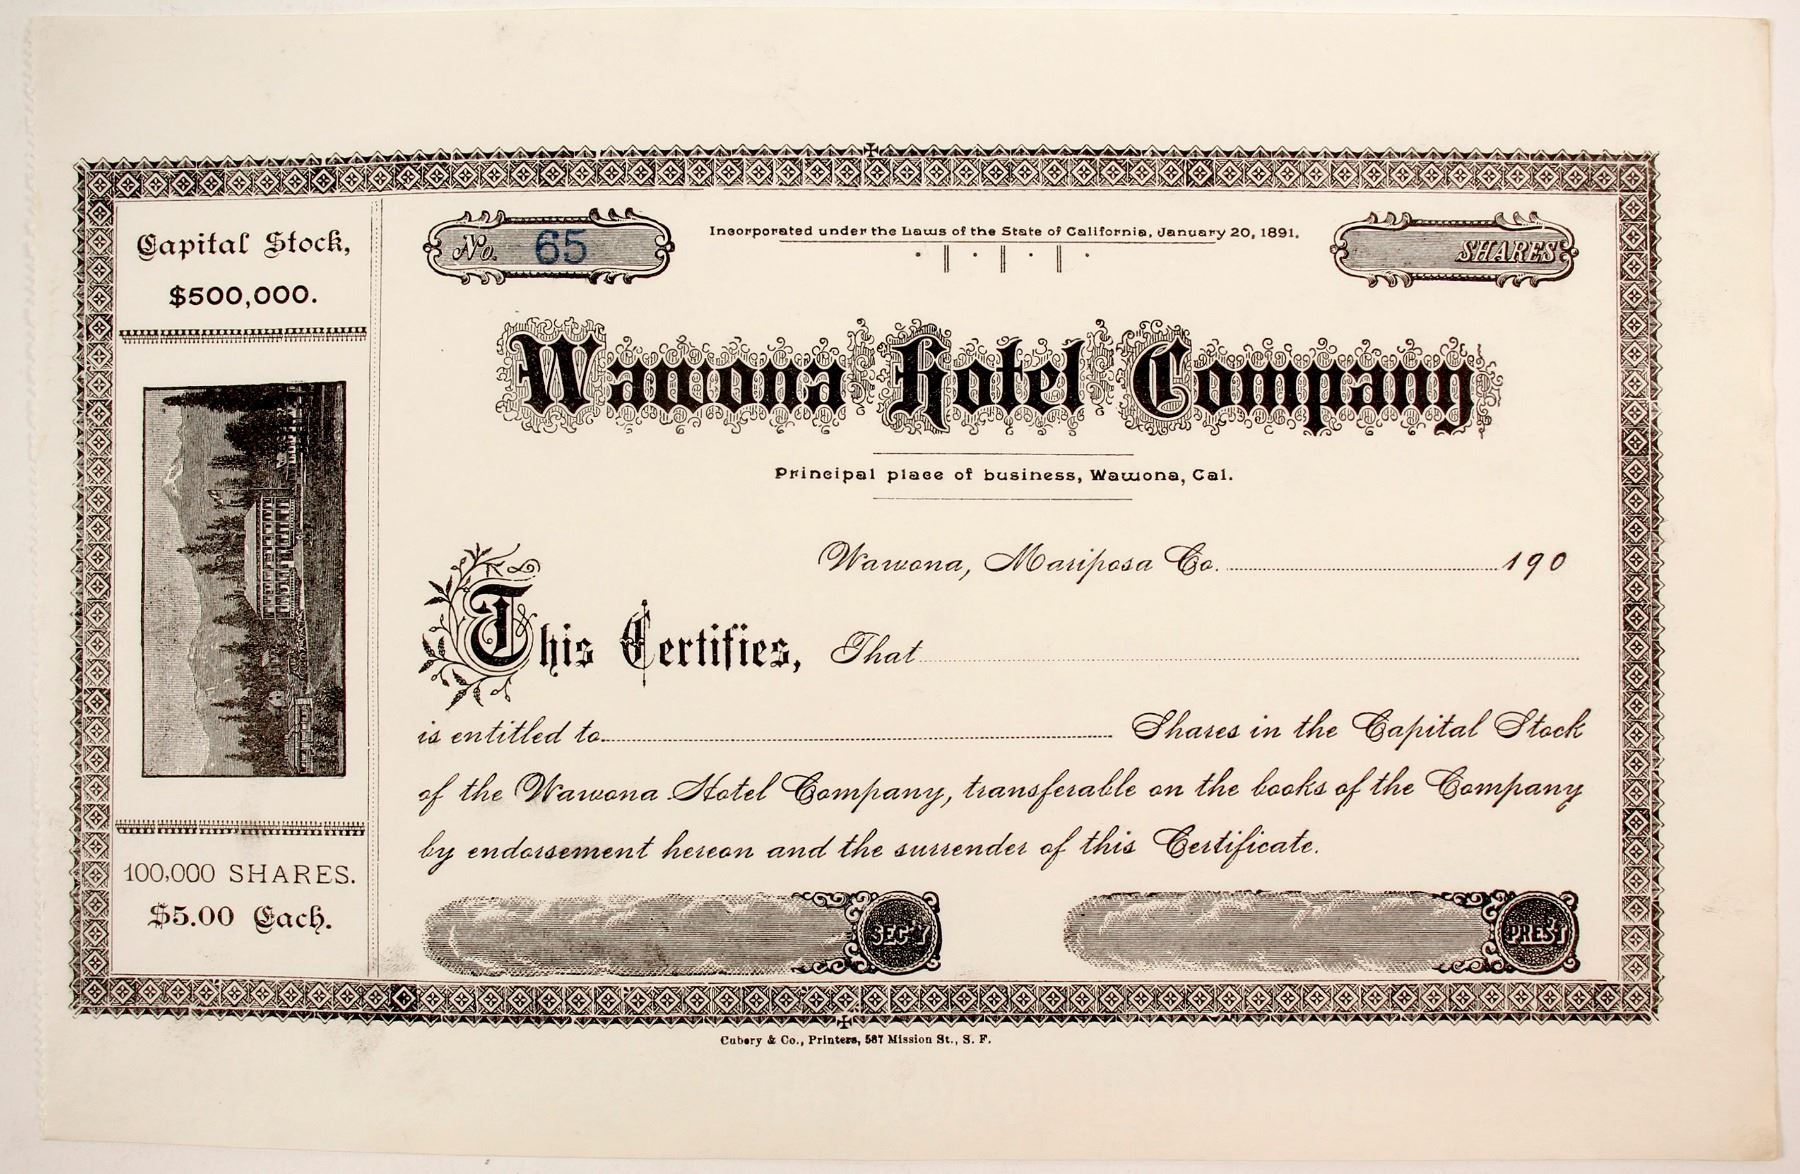 Capital Stock,
$500,000.
100,000 SHARES.
$5.00 Each.
No. 65
Incorporated under the Laws of the State of California, January 20, 1891.
SHARES
Wawona Hotel Company
Principal place of business, Wawona, Cal.
Wawona, Mariposa Co. 190
This Certifies, That
is entitled to Shares in the Capital Stock
of the Wawona Hotel Company, transferable on the books of the Company
by endorsement hereon and the surrender of this Certificate.
SEC'Y
PREST
Cubery & Co., Printers, 587 Mission St., S. F.